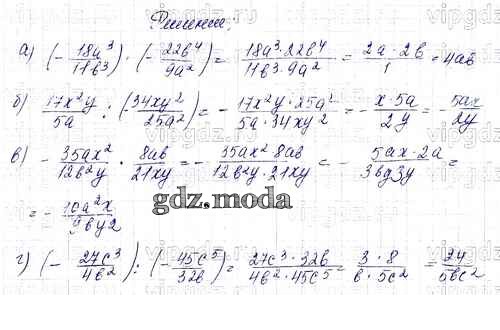 Решение.
а) (-18a³/11b³) · (-22b⁴/9a²) = 18a³·22b⁴/11b³·9a² = 2a·2b/1 = 4ab
б) 17x²y/5a : (-34xy²/25a²) = -17x²y·25a²/5a·34xy² = -x·5a/2y = -5ax/2y
в) -35ax²/12b²y · 8ab/21xy = -35ax²8ab/12b²y·21xy = -5ax·2a/3bg3y =
= -10a²x/9by2
gdz.moda
г) (-27c³/4b²) : (-45c⁵/32b) = 27c³·32b/4b²·45c⁵ = 3·8/b·5c² = 24/5bc²
vipgdz.ru